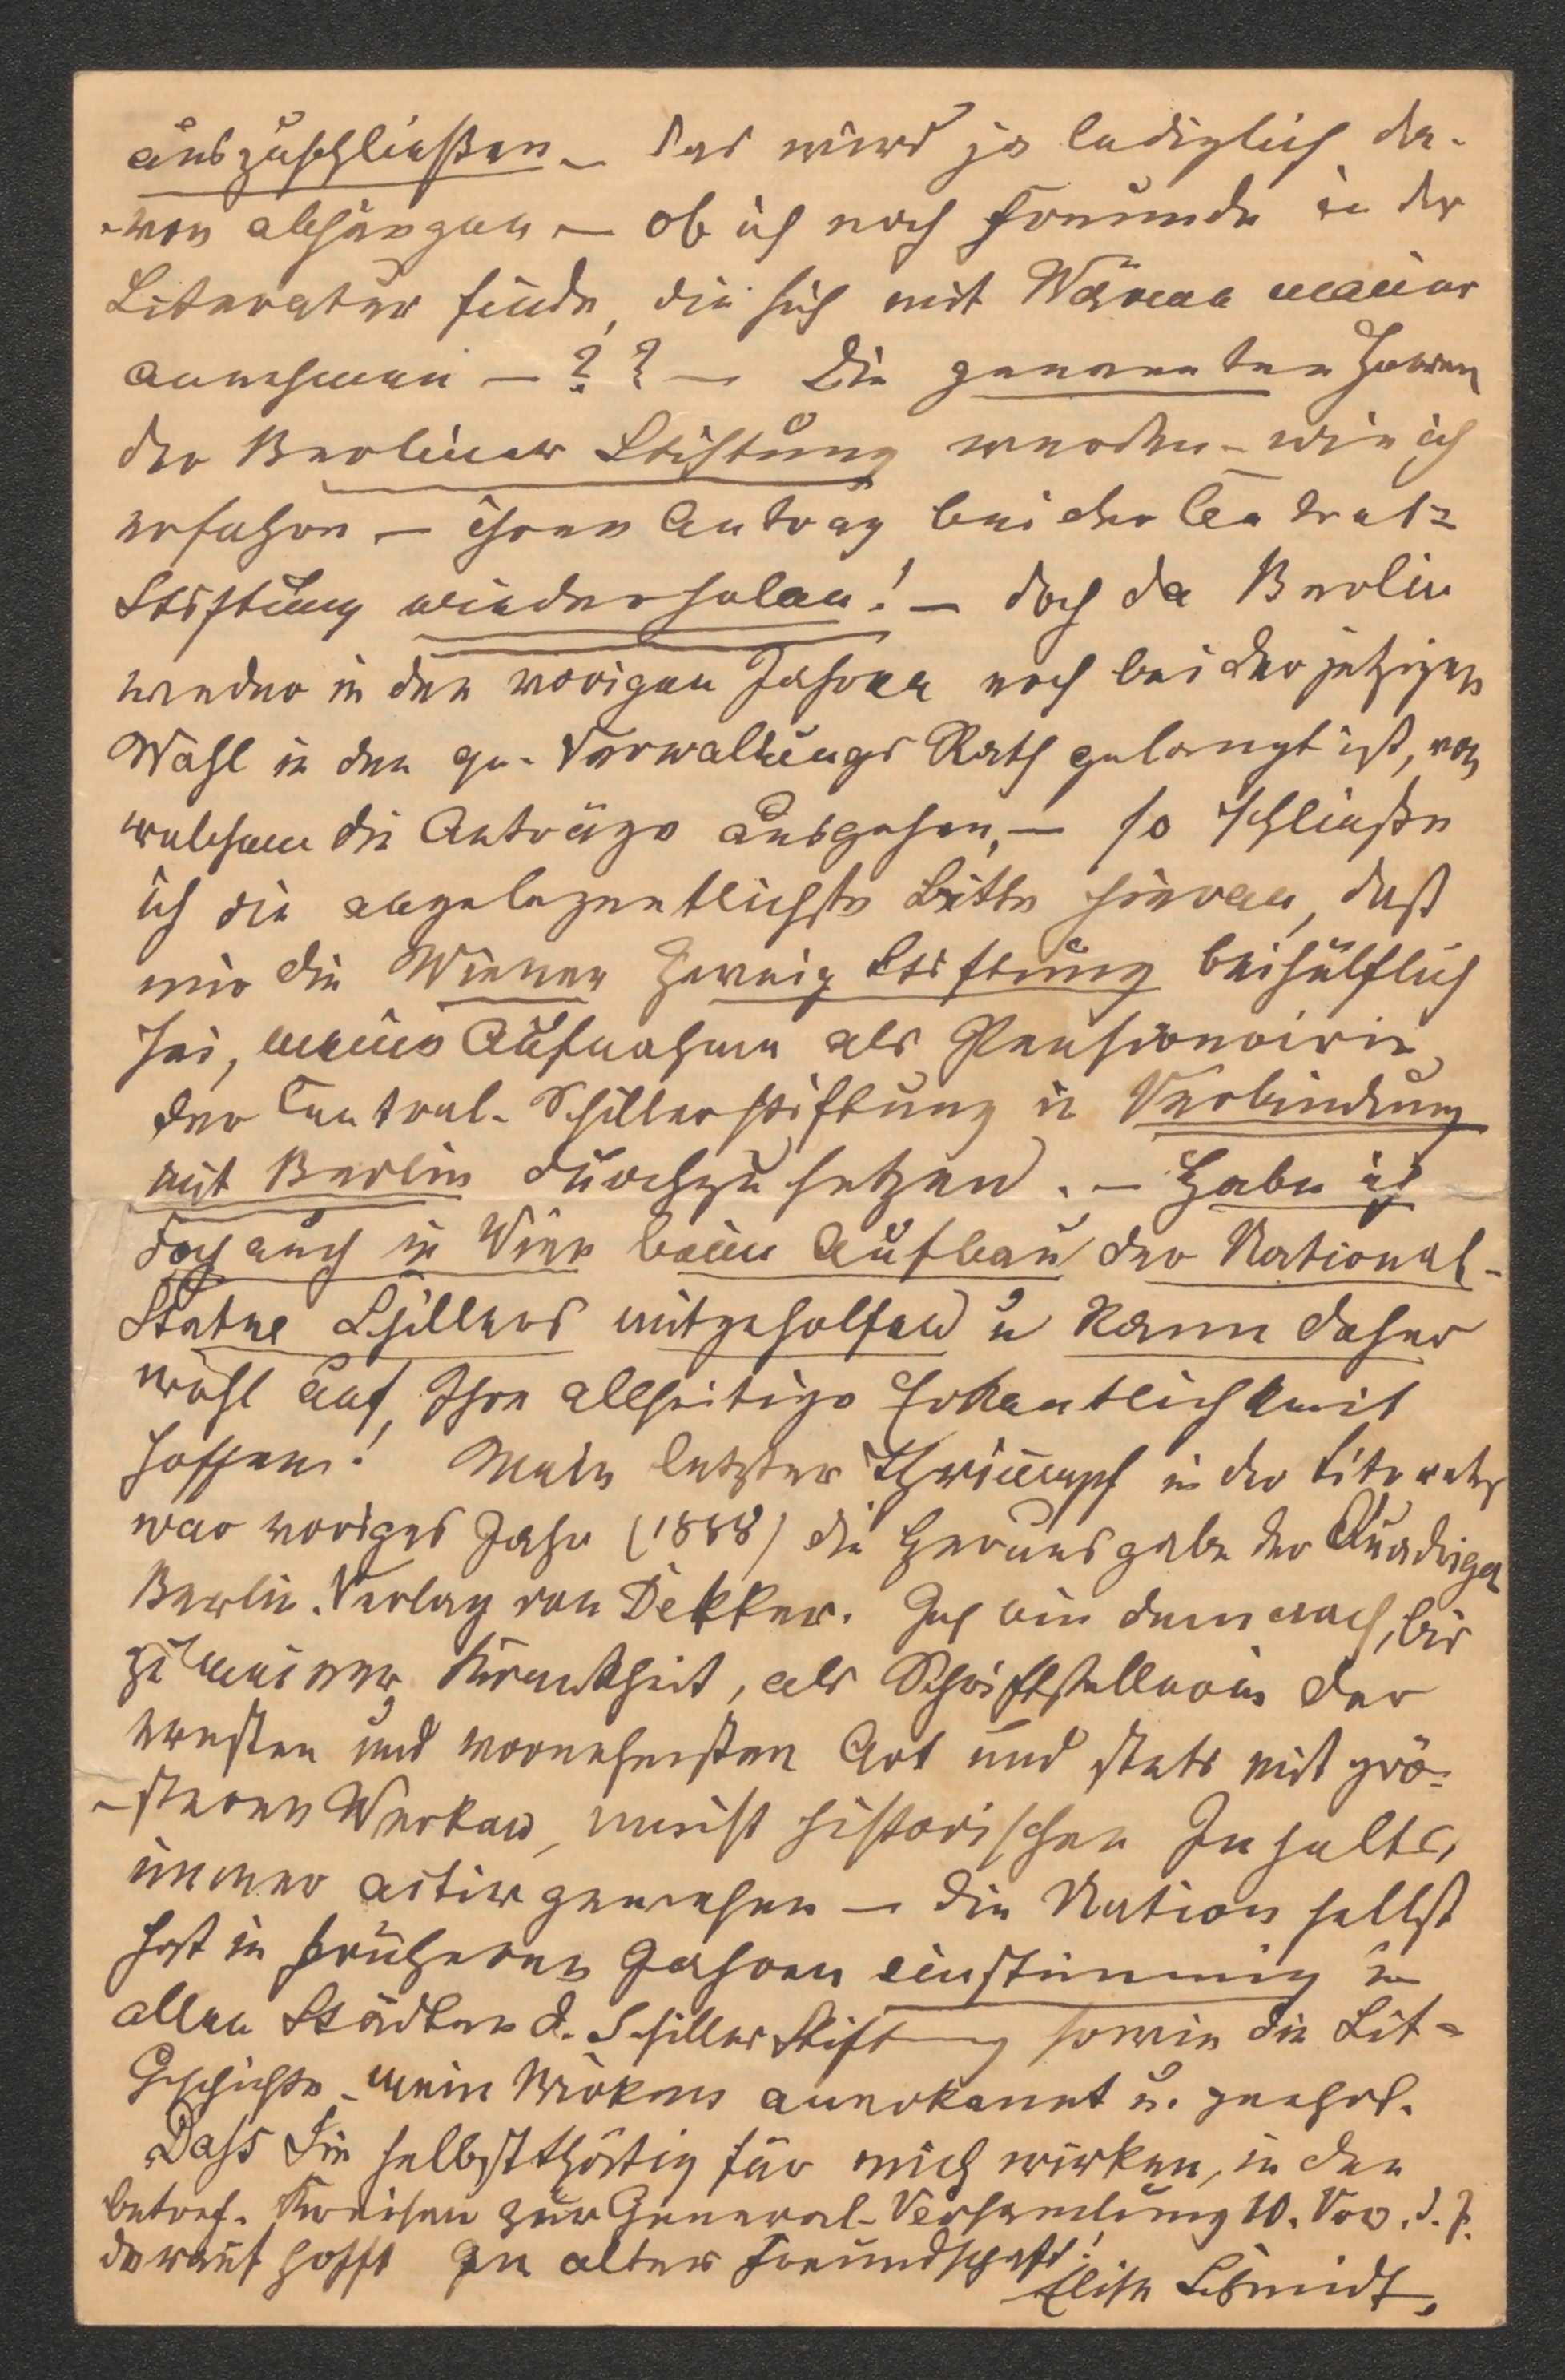 auszuschließen – das wird ja lediglich da-
-von abhängen – ob ich noch Freunde in der
Literatur finde, die sich mit Wärme meiner
annehmen – ?? – Die genannten Herren
der Berliner Stiftung werden – wie ich
erfahre – ihren Antrag bei der Central=
Stiftung wiederholen! – doch da Berlin
weder in den vorigen Jahren noch bei der jetzigen
Wahl in den  Verwaltungs Rath gelangt ist, von
welchem die Anträge ausgehen, – so schließe
ich die angelegentlichste Bitte hieran, daß
mir die Wiener Zweig Stiftung beihülflich
sei, meine Aufnahme als Pensionairin
der Central-Schillerstiftung in Verbindung
mit Berlin durchzusetzen. – Habe ich
doch auch in Wien beim Aufbau der National-
Statue Schillers mitgeholfen u kann daher
wohl auf Ihre allseitige Erkentlichkeit
hoffen! Mein letzter Thriumpf in der Literatur
war voriges Jahr (1888) die Herausgabe der Quadriga
Berlin. Verlag von Dekker. Ich bin demnach, bis
zu meiner Krankheit, als Schriftstellerin der
ernsten und vornehmsten Art und stets mit grö-
-ßeren Werken, meist historischen Inhalts,
immer activ gewesen – die Nation selbst
hat in früheren Jahren einstimmig in
allen Städten d. Schiller Stiftung sowie die Lit=
Geschichte – mein Wirken anerkannt u. geehrt.
Dass Sie selbstthätig für mich wirken, in den
betref. Kreisen zur General-Versamlung 10. Nov. d. J.
darauf hofft In alter Freundschaft!
Elise Schmidt.